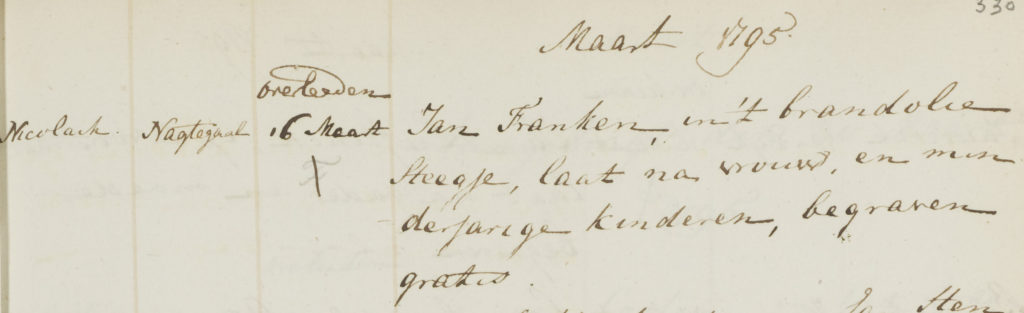 330
Maart 1795.
overleeden
Nicolaih. Nagtegaal 16 Maart Jan Franken, in't brandolie
Steegje, laat na vrouw, en min
derjarige kinderen, begraven
gratis.